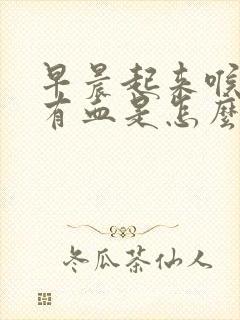 早晨起来喉
有血是怎麼
冬瓜茶仙人